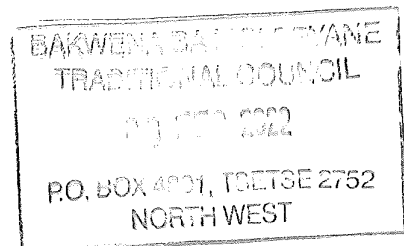 BAKWENA
TRADITIONAL COUNCIL
2022
P.O. BOX TSETSE 2752
NORTH WEST